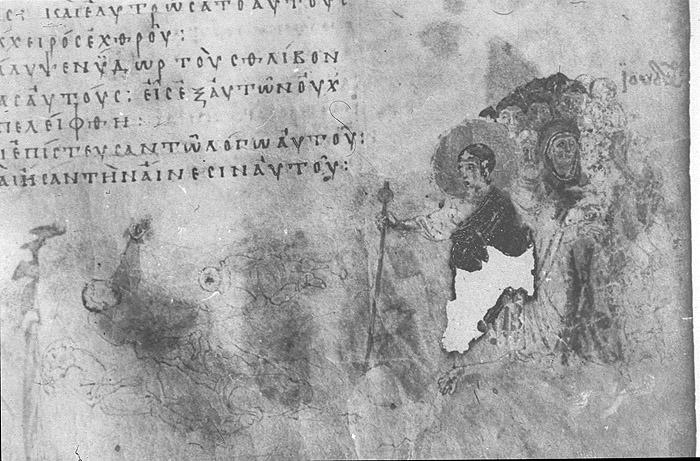 ΚΑΙ ΕΛΥΤΡΩCΑΤΟ ΑΥΤΟΥC
Κ ΧΕΙΡΟC ΕΧΘΡΟΥ:
ΑΛΥΨΕΝ ΥΔΩΡ ΤΟΥC ΘΛΙΒΟΝ
ΑC ΑΥΤΟΥC: ΕΙC ΕΞ ΑΥΤΩΝ ΟΥΧ
ΠΕΛΕΙΦΘΗ:
Ι ΕΠΙCΤΕΥCΑΝ ΤΩ ΛΟΓΩ ΑΥΤΟΥ:
ΑΙ ΗCΑΝ ΤΗΝ ΑΙΝΕCΙΝ ΑΥΤΟΥ: